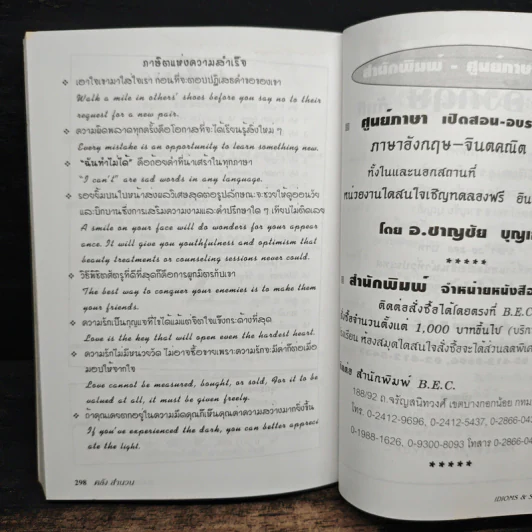 ภาษิตแห่งความสำเร็จ
เอาใจเขามาใส่ใจเรา ก่อนที่จะตอบปฏิเสธคำขอของเขา
Walk a mile in others' shoes before you say no to their
request for a new pair.
ความผิดพลาดทุกครั้งคือโอกาสที่จะได้เรียนรู้สิ่งใหม่ ๆ
Every mistake is an opportunity to learn something new.
"ฉันทำไม่ได้" คือถ้อยคำที่น่าเศร้าในทุกภาษา
"I can't" are sad words in any language.
รอยยิ้มบนใบหน้าส่งผลวิเศษสุดต่อรูปลักษณะ จะช่วยให้ดูอ่อนวัย
และเบิกบานซึ่งการเสริมความงามและคำปรึกษาใด ๆ เทียบไม่ติดเลย
A smile on your face will do wonders for your appear
ance. It will give you youthfulness and optimism that
beauty treatments or counseling sessions never could.
วิธีพิชิตศัตรูที่ดีที่สุดก็คือการผูกมิตรกับเขา
The best way to conquer your enemies is to make them
your friends.
ความรักเป็นกุญแจที่ไขได้แม้แต่จิตใจแข็งกระด้างที่สุด
Love is the key that will open even the hardest heart.
ความรักไม่มีหน่วยวัด ไม่อาจซื้อขายเพราะความรักจะมีค่าก็ต่อเมื่อ
มอบให้จากใจ
Love cannot be measured, bought, or sold, For it to be
valued at all, it must be given freely.
ถ้าคุณเคยตกอยู่ในความมืดคุณก็เห็นคุณค่าความสว่างมากยิ่งขึ้น
If you've experienced the dark, you can better appreci
ate the light.
298 คลัง สำนวน
สำนักพิมพ์ - ศูนย์ภาษา
ศูนย์ภาษา เปิดสอน-อบร
ภาษาอังกฤษ-จินตคณิต
ทั้งในและนอกสถานที่
หน่วยงานใดสนใจเชิญทดลองฟรี อิน
โดย อ.ชาญชัย บุญเ
*****
สำนักพิมพ์ จำหน่ายหนังสือ
ติดต่อสั่งซื้อได้โดยตรงที่ B.E.C.
สั่งซื้อจำนวนตั้งแต่ 1,000 บาทขึ้นไป (บริก
ห้องสมุดใดสนใจสั่งซื้อจะได้ส่วนลดพิเศ
สำนักพิมพ์ B.E.C.
188/92 ถ.จรัญสนิทวงศ์ เขตบางกอกน้อย กทม
โทร. 0-2412-9696, 0-2412-5437, 0-2866-04
0-1988-1626, 0-9300-8093 โทสาร 0-2866-04
*****
IDIOMS & S